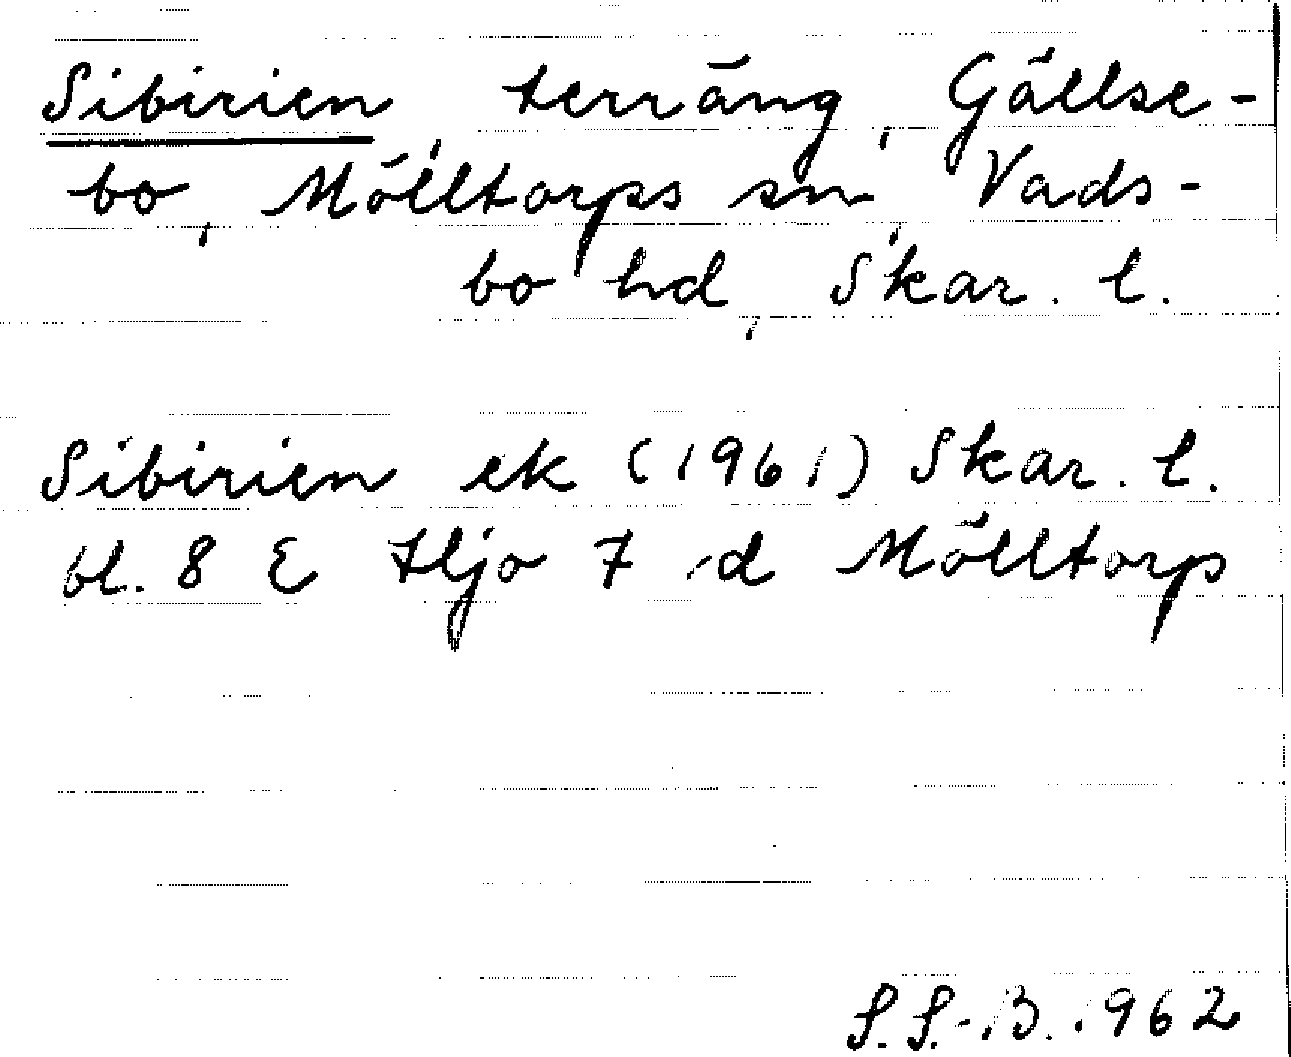 Sibirien, terräng, Gällse-
bo, Mölltorps sn, Vads-
bo hd, Skar. l.
Sibirien ek (1961) Skar. l.
bl. 8 E Hjo 7 d Mölltorp
S. S.-B. 1962